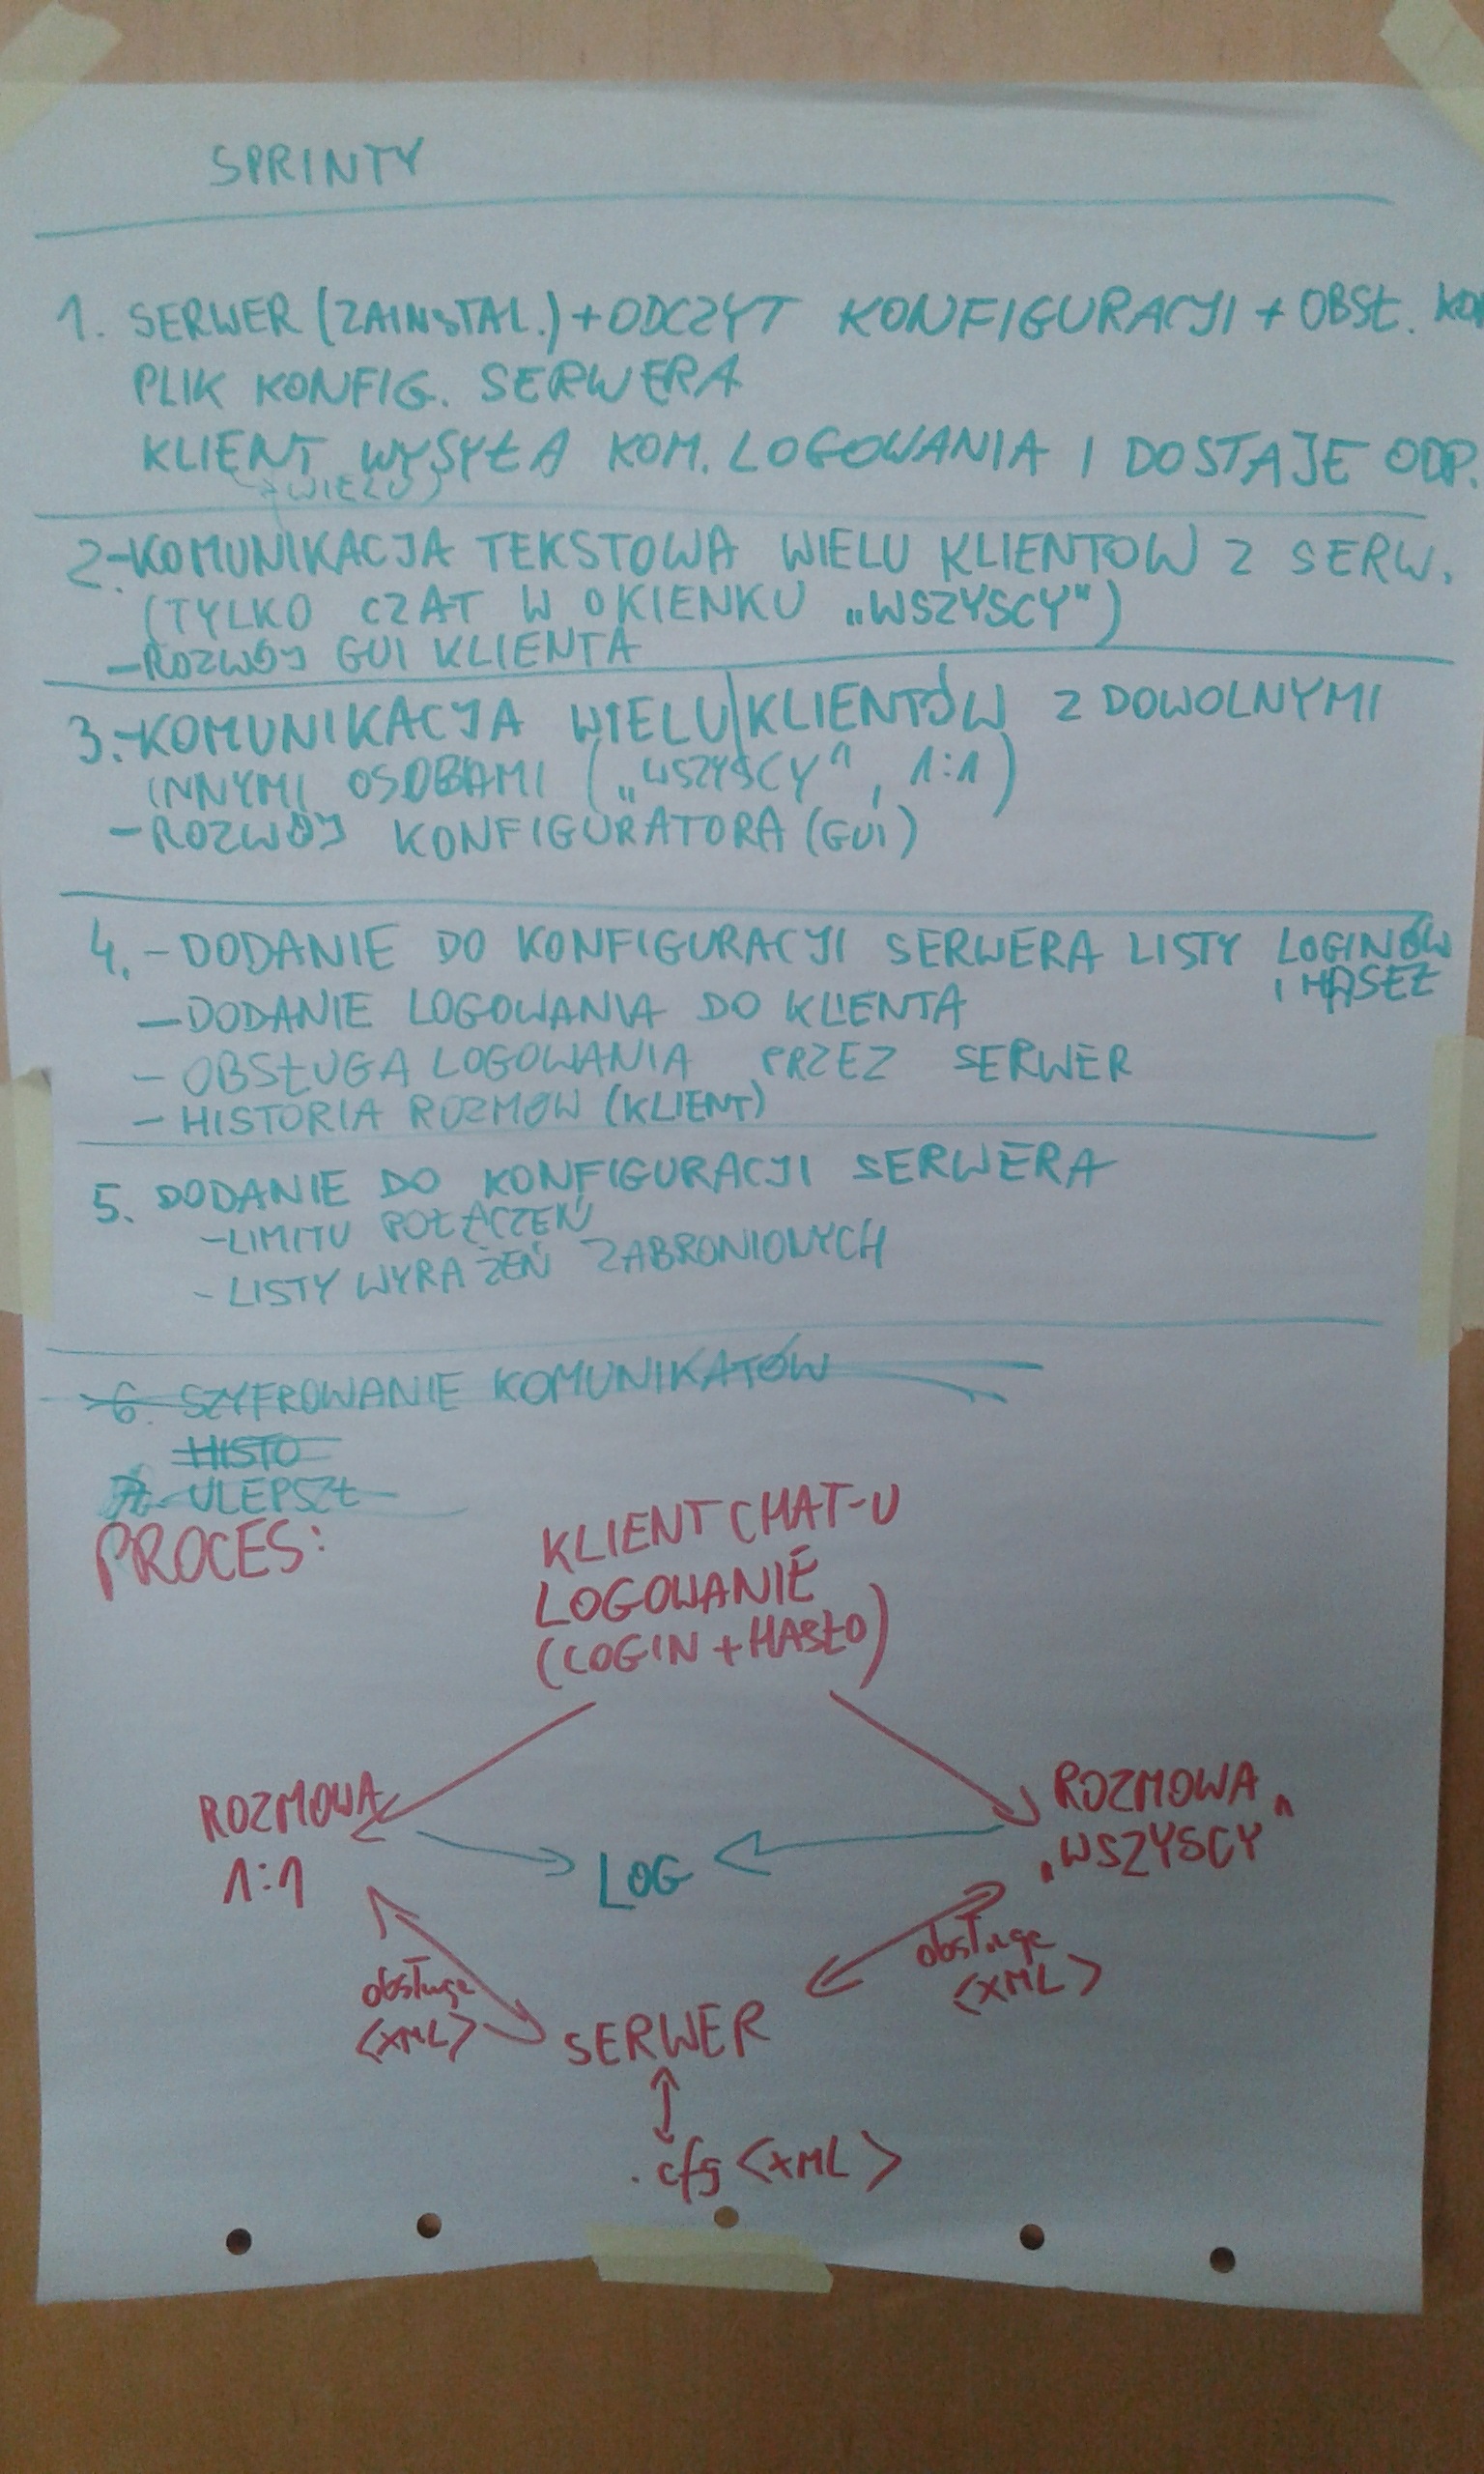 SPRINTY
1. SERWER (ZAINSTAL.) + ODCZYT KONFIGURACJI + OBSŁ.
PLIK KONFIG. SERWERA
KLIENT WYSYŁA KOM. LOGOWANIA I DOSTAJE ODP.
2. - KOMUNIKACJA TEKSTOWA WIELU KLIENTÓW Z SERW.
(TYLKO CZAT W OKIENKU „WSZYSCY")
- ROZWÓJ GUI KLIENTA
3. - KOMUNIKACJA WIELU KLIENTÓW Z DOWOLNYMI
INNYMI OSOBAMI („WSZYSCY" 1:1)
- ROZWÓJ KONFIGURATORA (GUI)
4. - DODANIE DO KONFIGURACJI SERWERA LISTY LOGINÓW
I HASEŁ
- DODANIE LOGOWANIA DO KLIENTA
- OBSŁUGA LOGOWANIA PRZEZ SERWER
- HISTORIA ROZMÓW (KLIENT)
5. DODANIE DO KONFIGURACJI SERWERA
- LIMITU POŁĄCZEŃ
- LISTY WYRAŻEŃ ZABRONIONYCH
6. SZYFROWANIE KOMUNIKATÓW
HISTO
ULEPSZ
PROCES:
KLIENT CHAT-U
LOGOWANIE
(LOGIN + HASŁO)
ROZMOWA
1:1
ROZMOWA
"WSZYSCY"
LOG
obsługa
<XML>
obsługa
<XML>
SERWER
.cfg <XML>